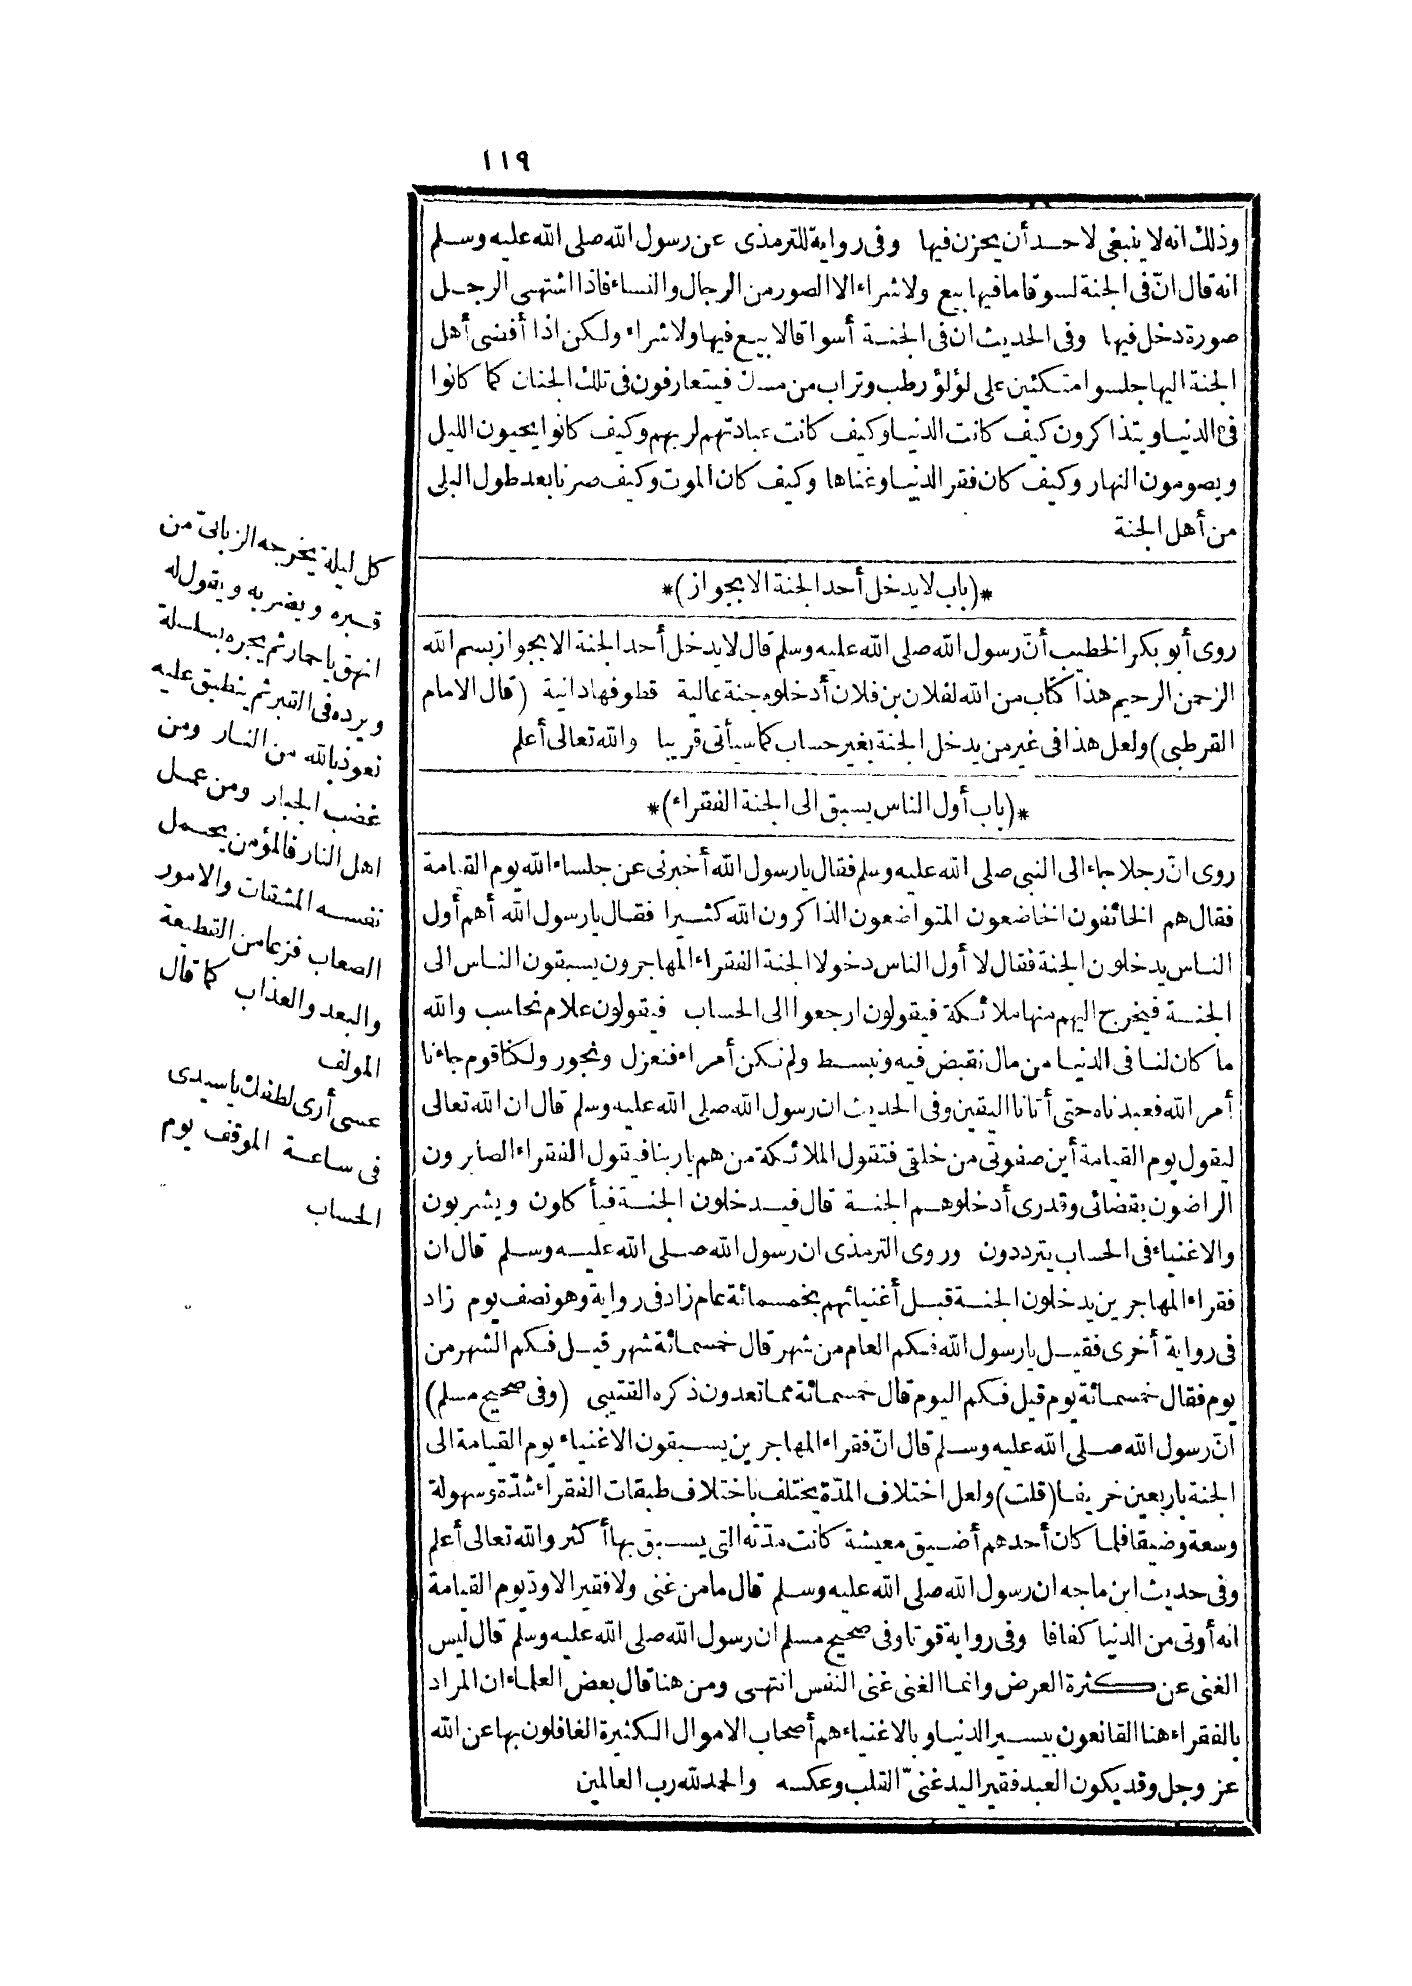 ١١٩
وذلك انه لا ينبغى لاحد أن يحزن فيها وفى رواية للترمذى عن رسول الله صلى الله عليه وسلم
انه قال انّ فى الجنة لسوقا ما فيها بيع ولا شراء الا الصور من الرجال والنساء فاذا اشتهى الرجل
صورة دخل فيها وفى الحديث ان فى الجنة أسواقا لا بيع فيها ولا شراء ولكن اذا أفضى أهل
الجنة اليها جلسوا متكئين على لؤلؤ رطب وتراب من مسك فيتعارفون فى تلك الجنان كما كانوا
فى الدنيا ويتذاكرون كيف كانت الدنيا وكيف كانت عبادتهم لربهم وكيف كانوا يحيون الليل
ويصومون النهار وكيف كان فقر الدنيا وغناها وكيف كان الموت وكيف صرنا بعد طول البلى
من أهل الجنة
*(باب لا يدخل أحد الجنة الا بجواز)*
روى أبو بكر الخطيب أنّ رسول الله صلى الله عليه وسلم قال لا يدخل أحد الجنة الا بجواز بسم الله
الرحمن الرحيم هذا كتاب من الله لفلان بن فلان أدخلوه جنة عالية قطوفها دانية (قال الامام
القرطبى) ولعل هذا فى غير من يدخل الجنة بغير حساب كما سيأتى قريبا والله تعالى أعلم
*(باب أول الناس يسبق الى الجنة الفقراء)*
روى انّ رجلا جاء الى النبى صلى الله عليه وسلم فقال يا رسول الله أخبرنى عن جلساء الله يوم القيامة
فقال هم الخائفون الخاضعون المتواضعون الذاكرون الله كثيرا فقال يا رسول الله أهم أول
الناس يدخلون الجنة فقال لا أول الناس دخولا الجنة الفقراء المهاجرون يسبقون الناس الى
الجنة فيخرج اليهم منها ملائكة فيقولون ارجعوا الى الحساب فيقولون علام نحاسب والله
ما كان لنا فى الدنيا من مال نقبض فيه ونبسط ولم نكن أمراء فنعزل ونجور ولكنا قوم جاءنا
أمر الله فعبدناه حتى أتانا اليقين وفى الحديث ان رسول الله صلى الله عليه وسلم قال ان الله تعالى
ليقول يوم القيامة أين صفوتى من خلقى فتقول الملائكة من هم يا ربنا فيقول الفقراء الصابرون
الراضون بقضائى وقدرى أدخلوهم الجنة قال فيدخلون الجنة فيأكلون ويشربون
والاغنياء فى الحساب يترددون وروى الترمذى ان رسول الله صلى الله عليه وسلم قال ان
فقراء المهاجرين يدخلون الجنة قبل أغنيائهم بخمسمائة عام زاد فى رواية وهو نصف يوم زاد
فى رواية أخرى فقيل يا رسول الله فكم العام من شهر قال خمسمائة شهر قيل فكم الشهر من
يوم فقال خمسمائة يوم قيل فكم اليوم قال خمسمائة مما تعدون ذكره القتيبى (وفى صحيح مسلم)
انّ رسول الله صلى الله عليه وسلم قال انّ فقراء المهاجرين يسبقون الاغنياء يوم القيامة الى
الجنة باربعين خريفا (قلت) ولعل اختلاف المدّة يختلف باختلاف طبقات الفقراء شدّة وسهولة
وسعة وضيقا فلما كان أحدهم أضيق معيشة كانت مدّته التى يسبق بها أكثر والله تعالى أعلم
وفى حديث ابن ماجه ان رسول الله صلى الله عليه وسلم قال ما من غنى ولا فقير الا ودّ يوم القيامة
انه أوتى من الدنيا كفافا وفى رواية قوتا وفى صحيح مسلم ان رسول الله صلى الله عليه وسلم قال ليس
الغنى عن كثرة العرض وانما الغنى غنى النفس انتهى ومن هنا قال بعض العلماء ان المراد
بالفقراء هنا القانعون بيسير الدنيا وبالاغنياء هم أصحاب الاموال الكثيرة الغافلون بها عن الله
عز وجل وقد يكون العبد فقير اليد غنىّ القلب وعكسه والحمد لله رب العالمين
كل ليلة يخرجه الزبانىّ من
قبره ويضربه ويقول له
انهق يا حمار ثم يجره بسلسلة
ويرده فى القبر ثم ينطبق عليه
نعوذ بالله من النار ومن
غضب الجبار ومن عمل
اهل النار فالمؤمن يحمل
نفسه المشقات والامور
الصعاب فزعا من القطيعة
والبعد والعذاب كما قال
المولف
عسى أرى لطفك يا سيدى
فى ساعة الموقف يوم
الحساب